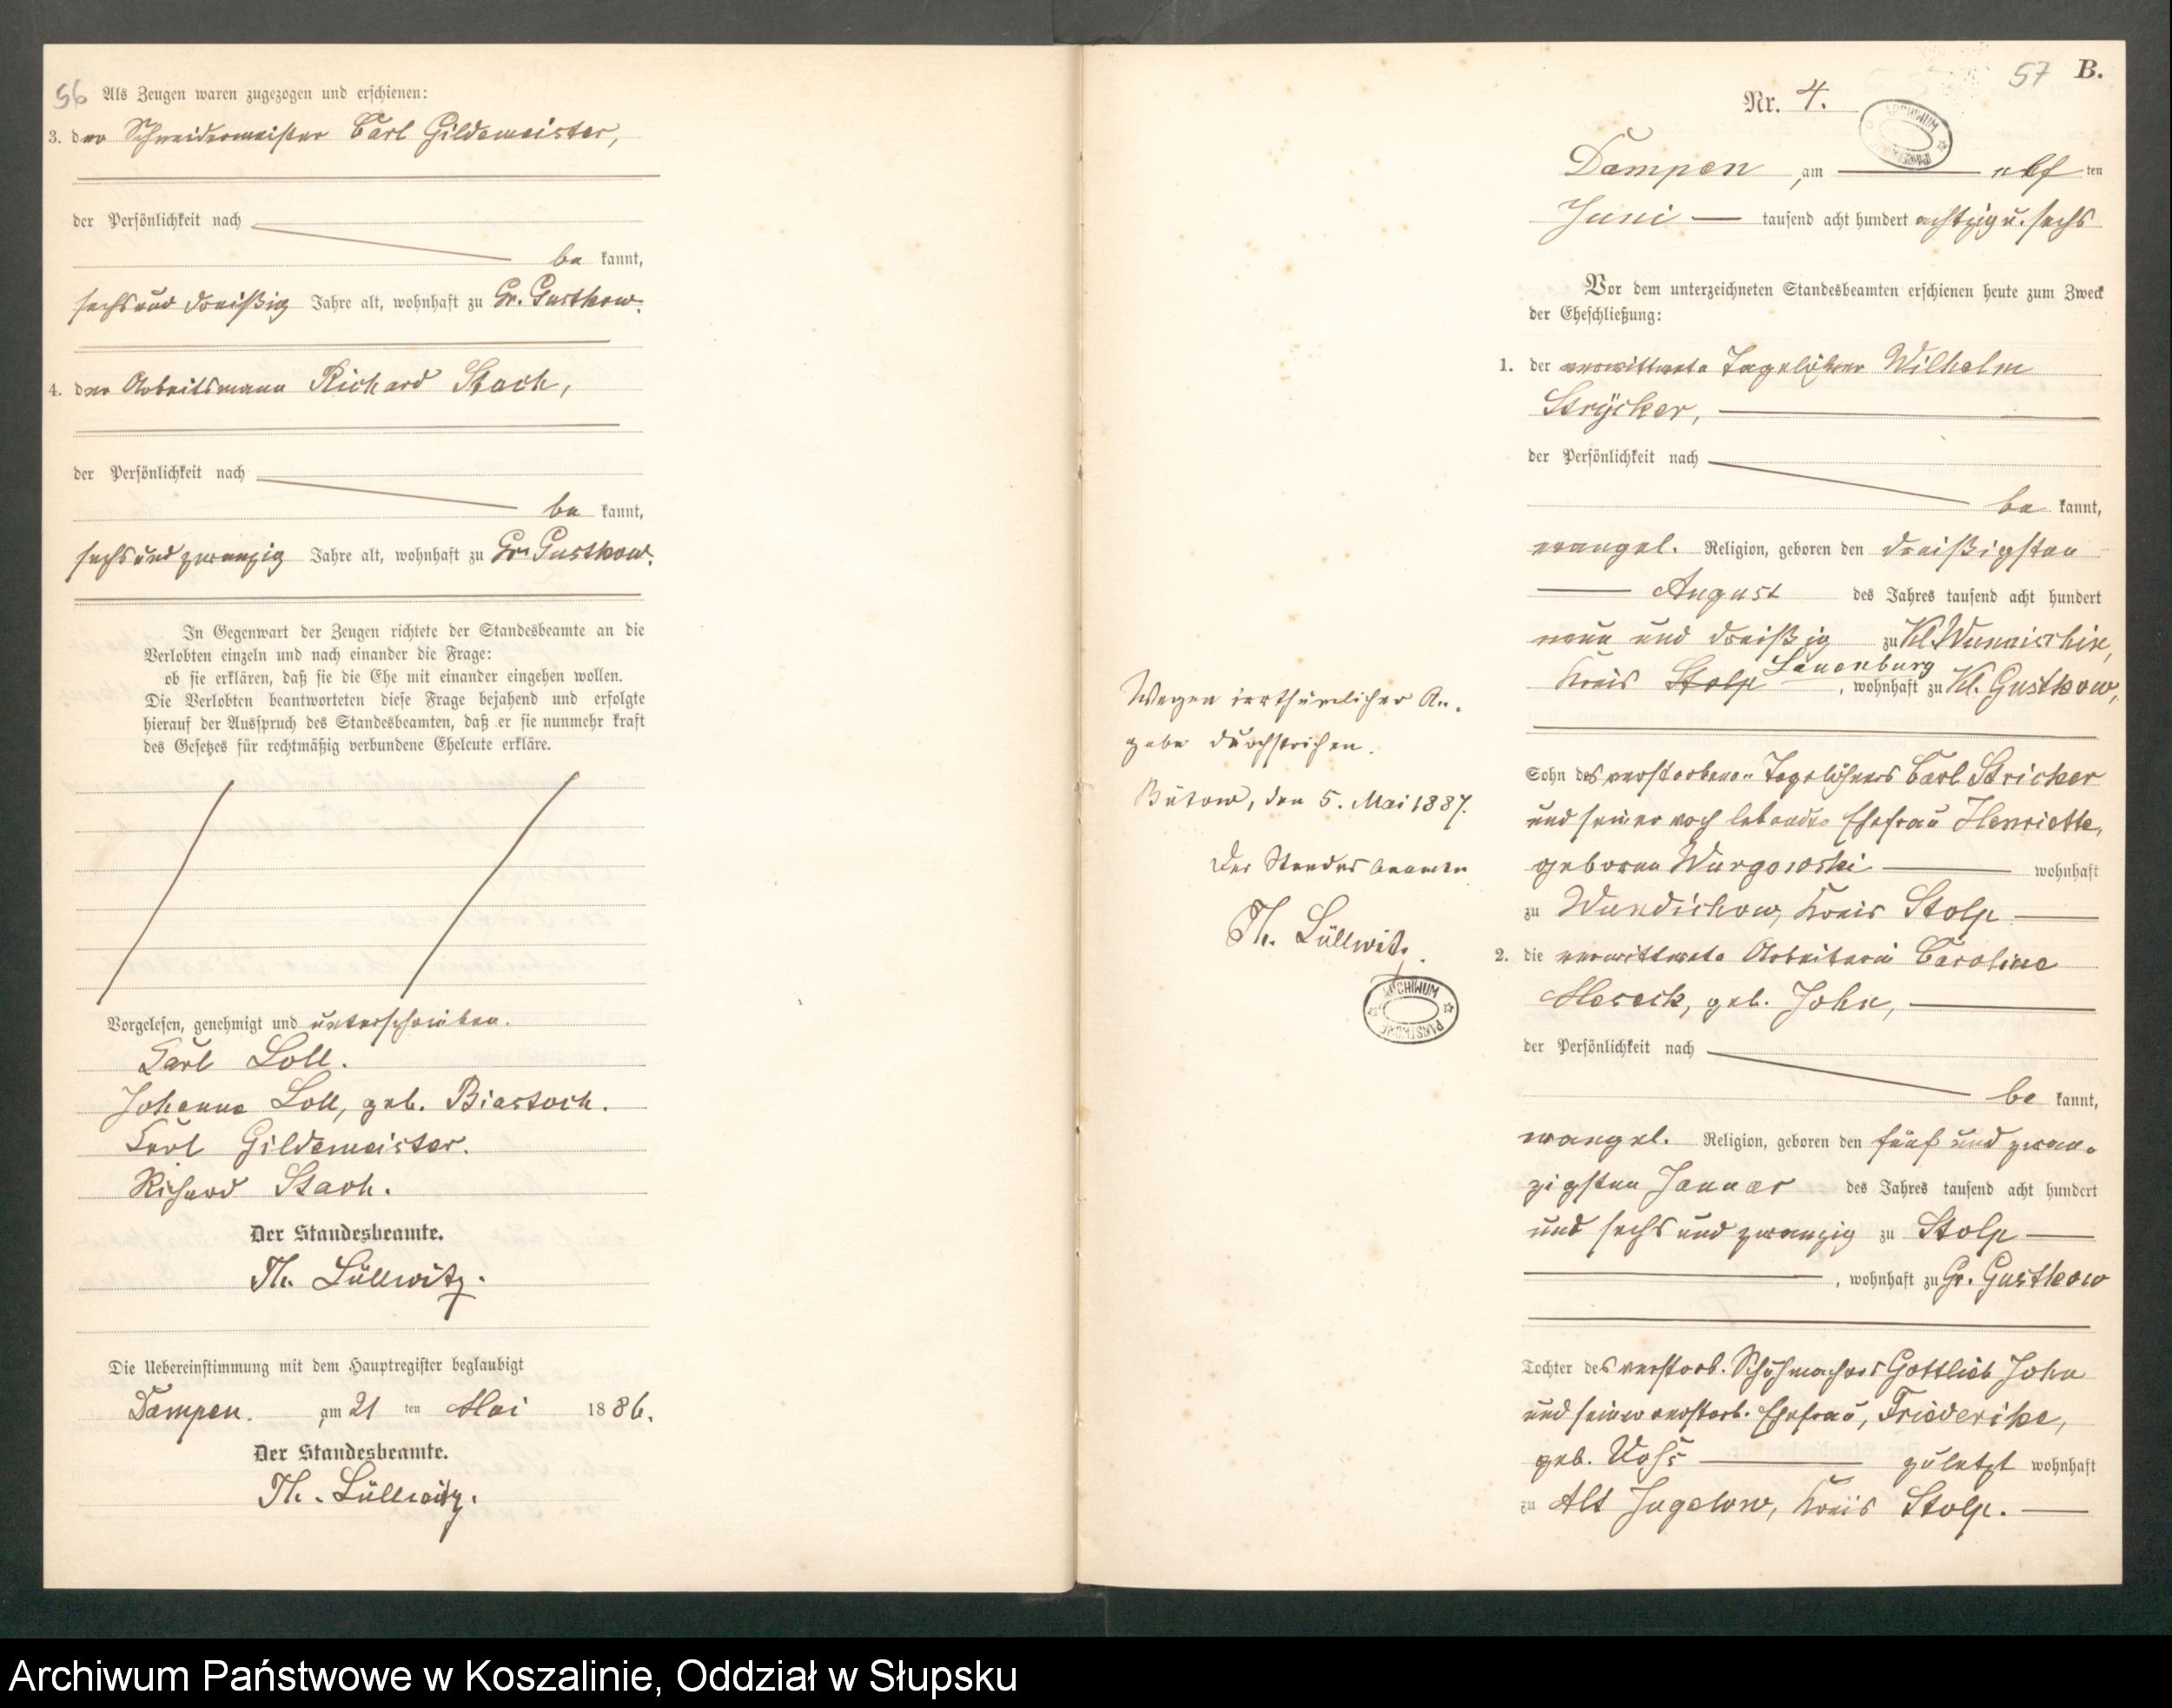 56 Als Zeugen waren zugezogen und erschienen:
3. der Schneidermeister Carl Gildemeister,
der Persönlichkeit nach
be kannt,
sechs und dreißig Jahre alt, wohnhaft zu Gr. Gustkow.
4. der Arbeitsmann Richard Stach,
der Persönlichkeit nach
be kannt,
sechs und zwanzig Jahre alt, wohnhaft zu Gr. Gustkow.
In Gegenwart der Zeugen richtete der Standesbeamte an die
Verlobten einzeln und nach einander die Frage:
ob sie erklären, daß sie die Ehe mit einander eingehen wollen.
Die Verlobten beantworteten diese Frage bejahend und erfolgte
hierauf der Ausspruch des Standesbeamten, daß er sie nunmehr kraft
des Gesetzes für rechtmäßig verbundene Eheleute erkläre.
Vorgelesen, genehmigt und unterschrieben.
Carl Loll.
Johanne Loll, geb. Biastoch.
Carl Gildemeister.
Richard Stach.
Der Standesbeamte.
Th. Lüllwitz.
Die Uebereinstimmung mit dem Hauptregister beglaubigt
Dampen. am 21 ten Mai 1886.
Der Standesbeamte.
Th. Lüllwitz.
57 B.
Nr. 4.
ARCHIWUM
Dampen, am elf ten
Juni tausend acht hundert achtzig u. sechs
Vor dem unterzeichneten Standesbeamten erschienen heute zum Zweck
der Eheschließung:
1. der verwittwete Tagelöhner Wilhelm
Strycker,
der Persönlichkeit nach
be kannt,
evangel. Religion, geboren den dreißigsten
August des Jahres tausend acht hundert
neun und dreißig zu Kl. Wunnischin,
Kreis Stolp Lauenburg, wohnhaft zu Kl. Gustkow,
Sohn des verstorbenen Tagelöhners Carl Stricker
und seiner noch lebenden Ehefrau Henriette,
geborene Wurgowski wohnhaft
zu Wundichow, Kreis Stolp
2. die verwittwete Arbeiterin Caroline
geb. John,
der Persönlichkeit nach
be kannt,
evangel. Religion, geboren den fünf und zwan-
zigsten Januar des Jahres tausend acht hundert
und sechs und zwanzig zu Stolp
, wohnhaft zu Gr. Gustkow
Tochter des verstorb. Schuhmachers Gottlieb John
und seiner verstorb. Ehefrau, Friederike,
geb. Voß zuletzt wohnhaft
zu Alt Jugelow, Kreis Stolp.
Wegen irrthümlicher An-
gabe durchstrichen.
Bütow, den 5. Mai 1887.
Der Standesbeamte
Th. Lüllwitz.
ARCHIWUM PAŃSTWOWE
Archiwum Państwowe w Koszalinie, Oddział w Słupsku